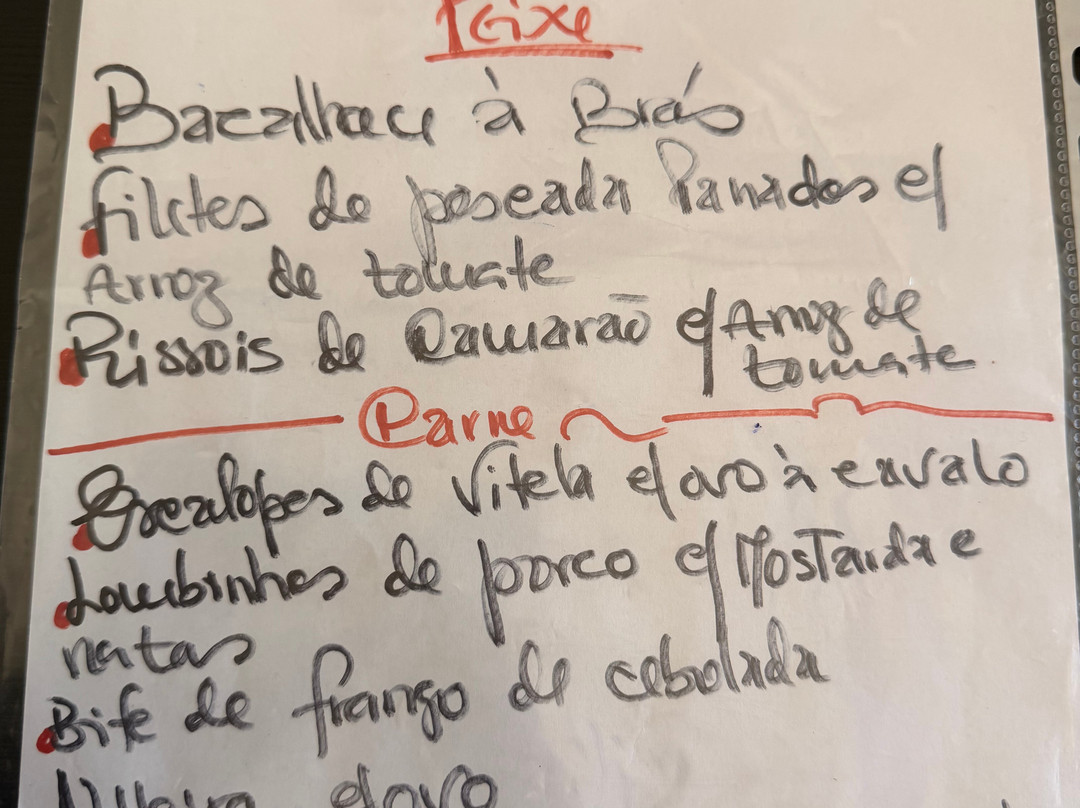 Peixe
Bacalhau à Brás
filetes de pescada Panados c/
Arroz de tomate
Rissois de Camarão c/ Arroz de
tomate
Carne
Escalopes de Vitela c/ ovo à cavalo
Lombinhos de porco c/ Mostarda e
natas
Bife de frango de cebolada
c/ ovo